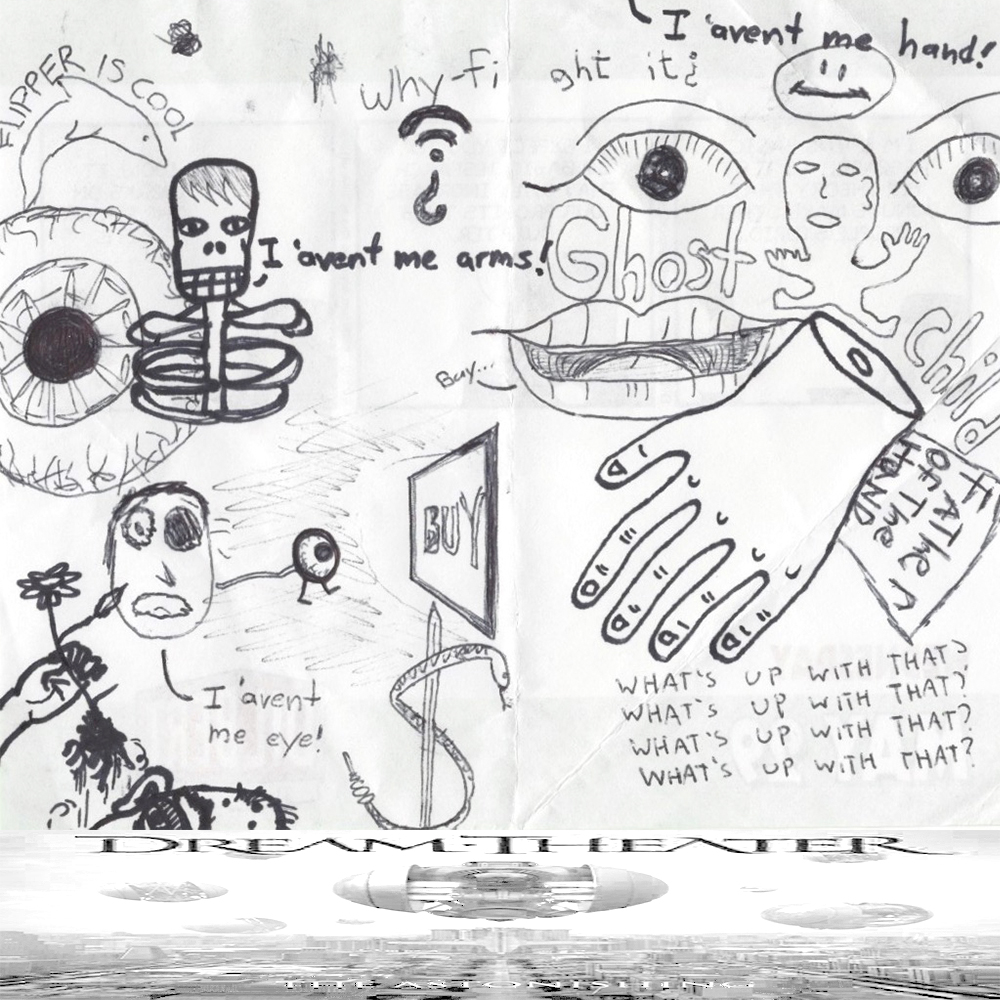 I 'avent me hand!
FLIPPER IS COOL
Why-fi ght it¿
I 'avent me arms!
Ghost
Child
Buy...
BUY
FATHER
OF THE
HAND
I 'avent
me eye!
WHAT'S UP WITH THAT?
WHAT'S UP WITH THAT?
WHAT'S UP WITH THAT?
WHAT'S UP WITH THAT?
DREAM THEATER
THE ASTONISHING